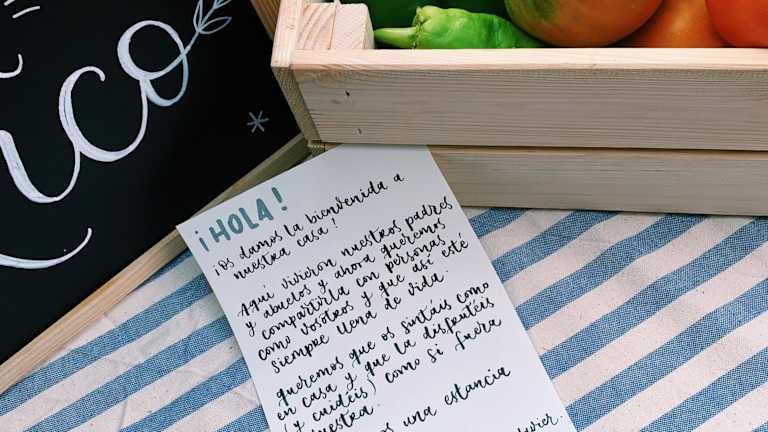 ico
¡HOLA!
¡Os damos la bienvenida a
nuestra casa!
Aquí vivieron nuestros padres
y abuelos y ahora queremos
compartirla con personas
como vosotros y que así esté
siempre llena de vida.
queremos que os sintáis como
en casa y que la disfrutéis
(y cuidéis) como si fuera
vuestra.
os una estancia